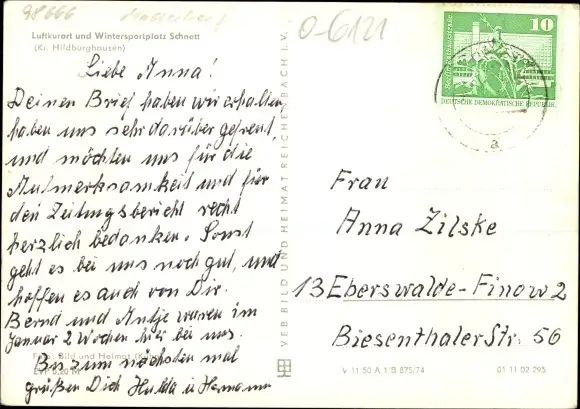 98666
0-6121
Luftkurort und Wintersportplatz Schnett
(Kr. Hildburghausen)
Liebe Anna!
Deinen Brief haben wir erhalten
haben uns sehr darüber gefreut,
und möchten uns für die
Aufmerksamkeit und für
den Zeitungsbericht recht
herzlich bedanken. Sonst
geht es bei uns noch gut, und
hoffen es auch von Dir.
Bernd und Antje waren im
Januar 2 Wochen hier bei uns.
Bis zum nächsten mal
grüßen Dich Hulda u Hermann
Foto: Bild und Heimat
EVP 0,20 M
VEB BILD UND HEIMAT REICHENBACH I. V.
10
DEUTSCHE DEMOKRATISCHE REPUBLIK
a
Frau
Anna Zilske
13 Eberswalde-Finow 2
Biesenthaler Str. 56
V 11 50 A 1/B 875/74
01 11 02 295